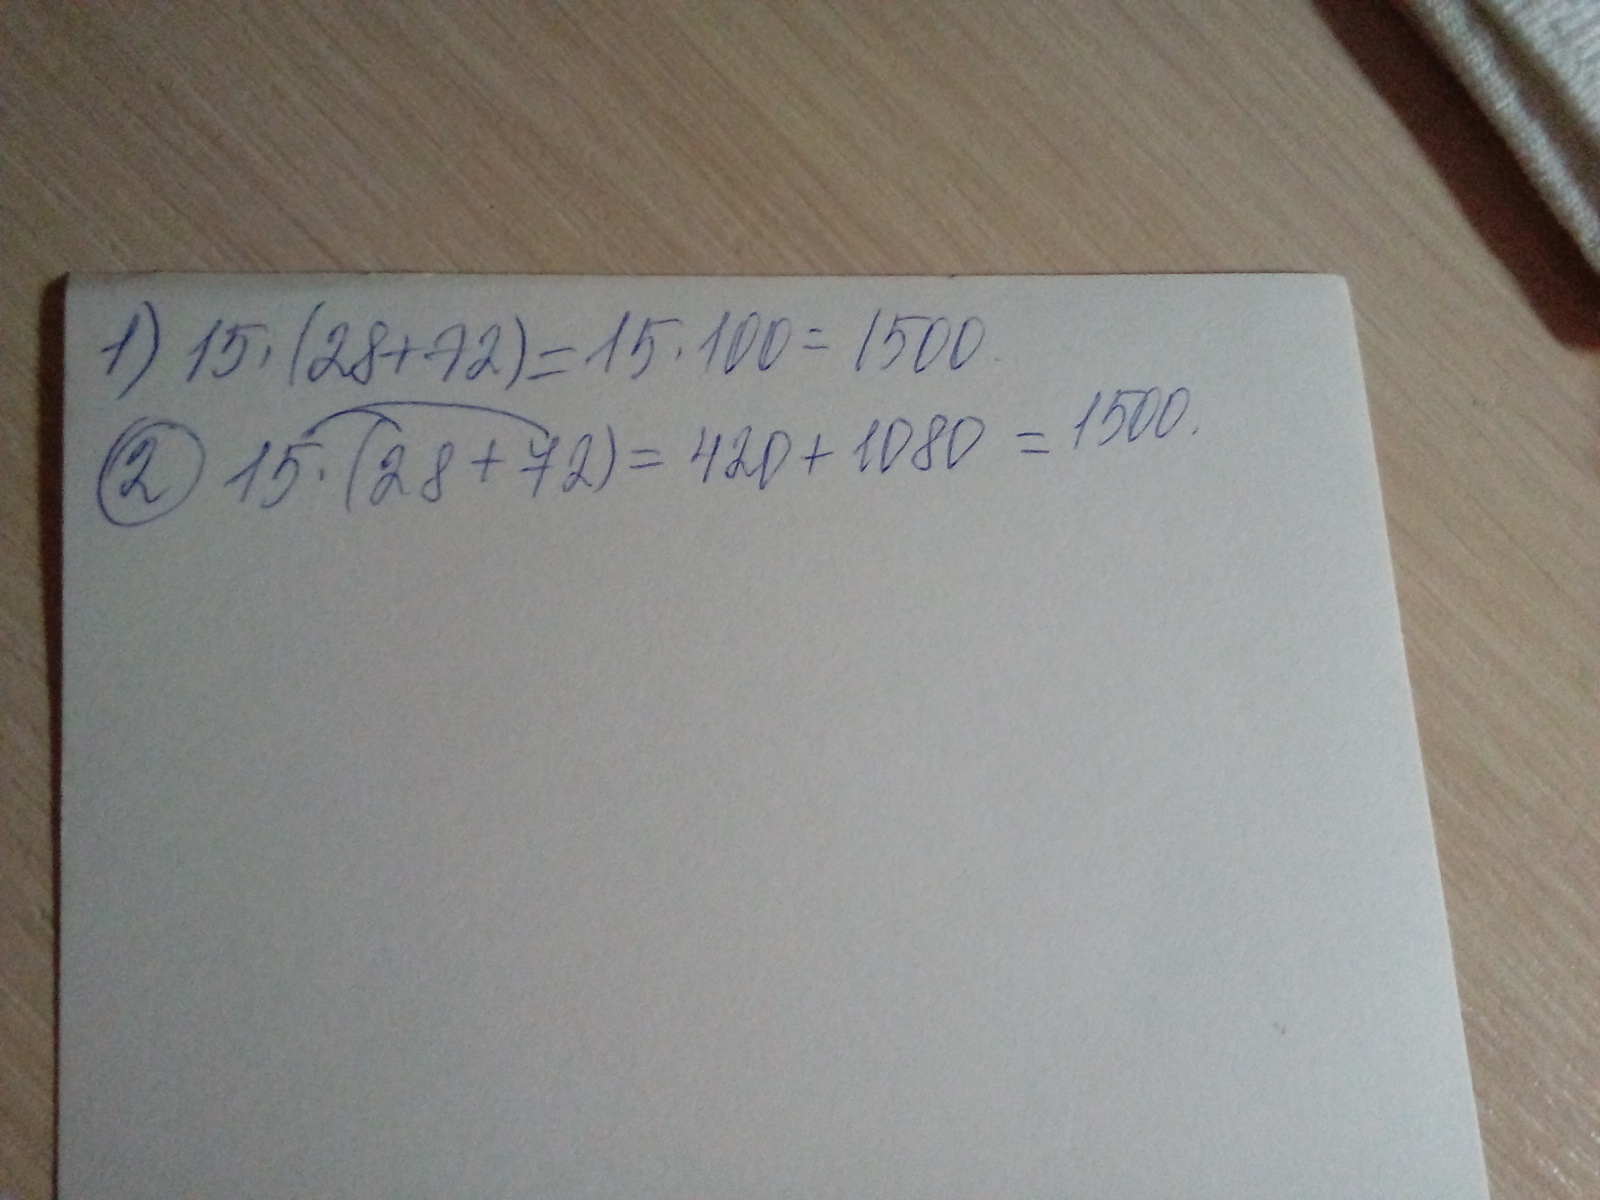 1) 15·(28+72)=15·100=1500.
2 15·(28+72)=420+1080=1500.